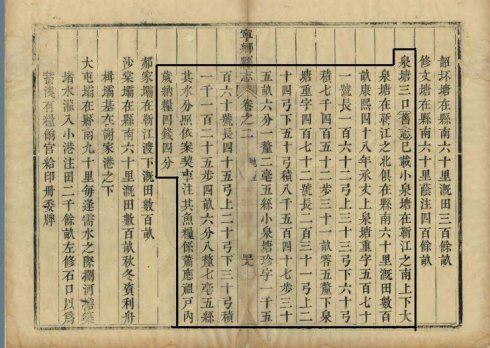 韶坏塘在縣南六十里溉田三百餘畝
修文塘在縣南六十里蔭注四百餘畝
泉塘三口舊志已載小泉塘在靳江之南上下大
泉塘在靳江之北俱在縣南六十里溉田數百
畝康熙四十八年承丈上泉塘重字五百七十
一號長一百六十二弓上三十三弓下六十三弓
積七千四百五十二步三十一畝零五釐下泉
塘重字四百七十二號長二百三十一弓上二
十四弓下五十弓積八千五百四十七步三十
五畝六分一釐二毫五絲小泉塘珍字一千五
百六十號長四十五弓上二十弓下三十弓積
一千一百二十五步四畝六分八釐七毫五絲
其水分照依案契車注其魚糧係蕭應祖戶內
歲納糧四錢四分
寧鄉縣志
卷之二
郝家壩在靳江渡下溉田數百畝
沙棠壩在縣南六十里溉田數百畝秋冬資利舟
楫壩基在謝家港之下
大屯壩在縣南九十里每逢需水之際攔河築
堵水灌入小港注田二千餘畝左修石口以爲
蓄洩有糧爾官給印冊委牌